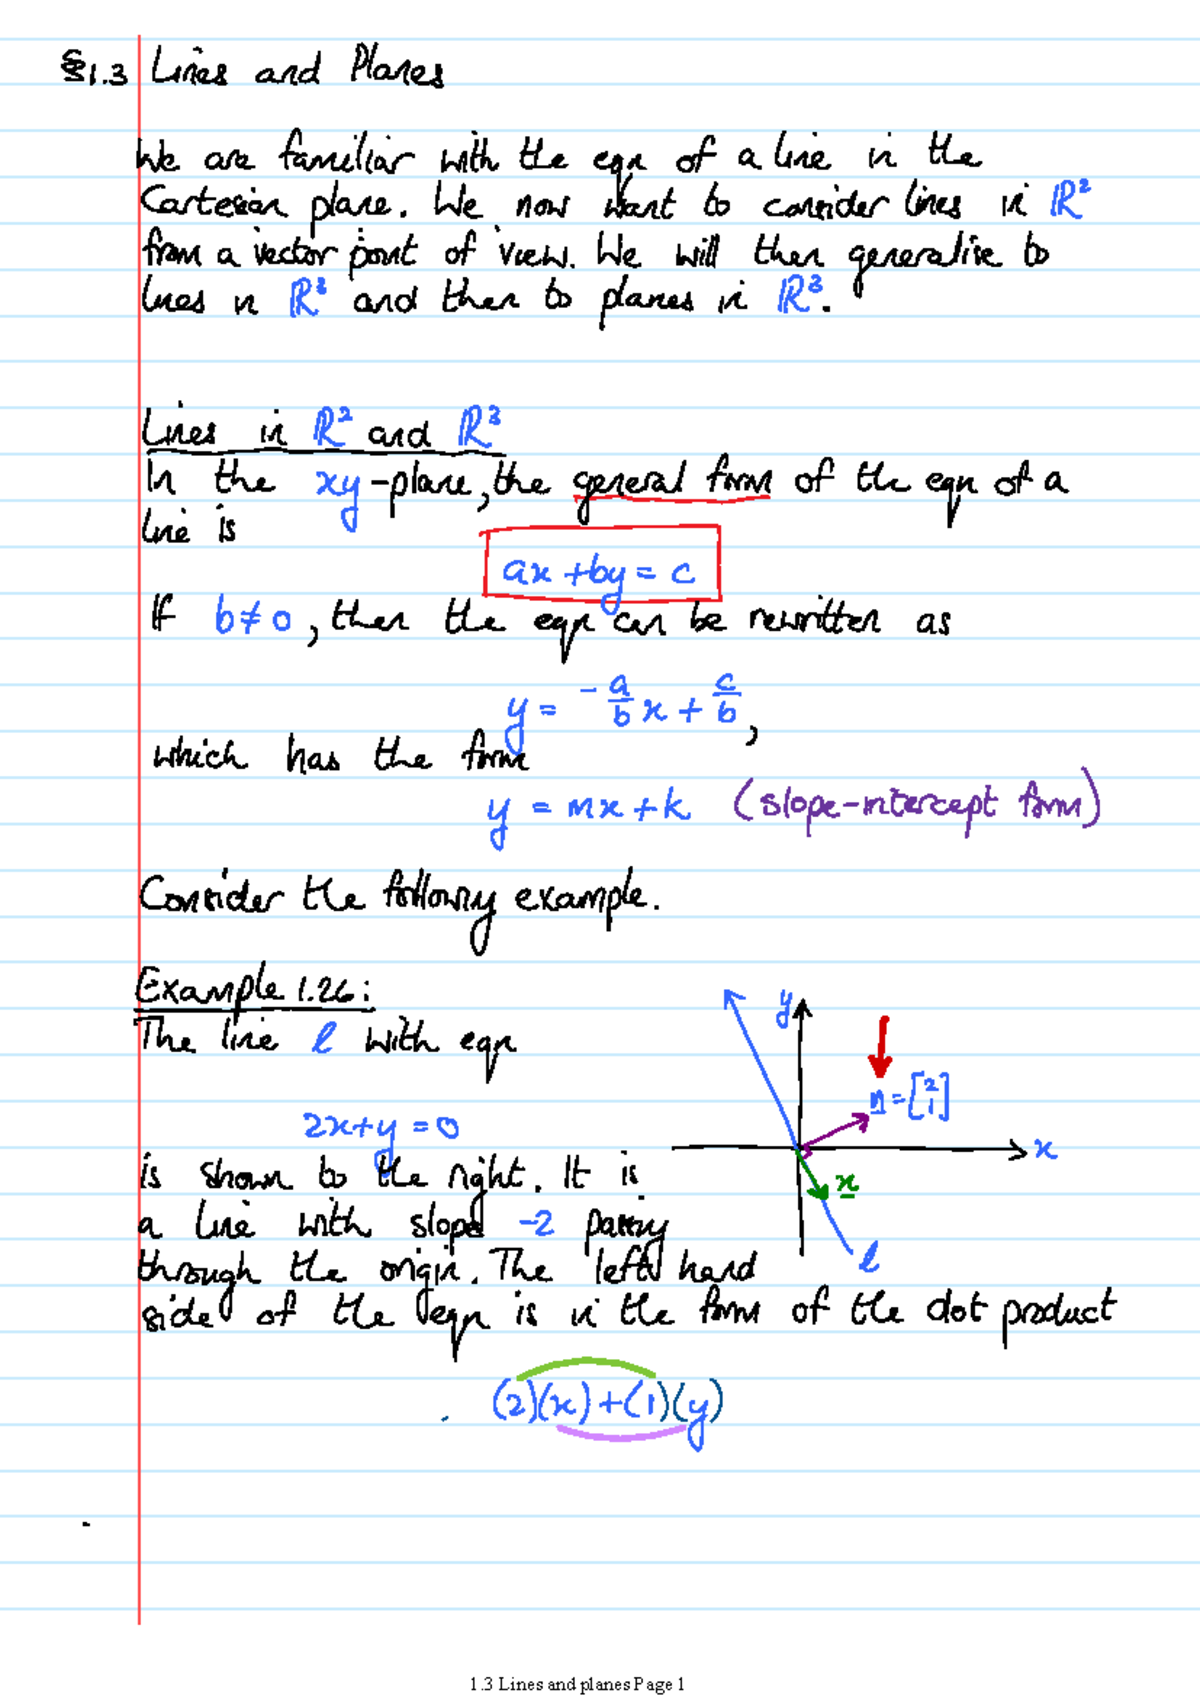 §1.3 Lines and Planes
We are familiar with the eqn of a line in the
Cartesian plane. We now want to consider lines in ℝ²
from a vector point of view. We will then generalise to
lines in ℝ³ and then to planes in ℝ³.
Lines in ℝ² and ℝ³
In the xy-plane, the general form of the eqn of a
line is
ax + by = c
If b ≠ 0, then the eqn can be rewritten as
y = -a/b x + c/b,
which has the form
y = mx + k (slope-intercept form)
Consider the following example.
Example 1.26:
The line l with eqn
2x + y = 0
is shown to the right. It is
a line with slope -2 passing
through the origin. The left hand
side of the eqn is in the form of the dot product
(2)(x) + (1)(y)
y
n = [2 1]
x
x
l
1.3 Lines and planes Page 1